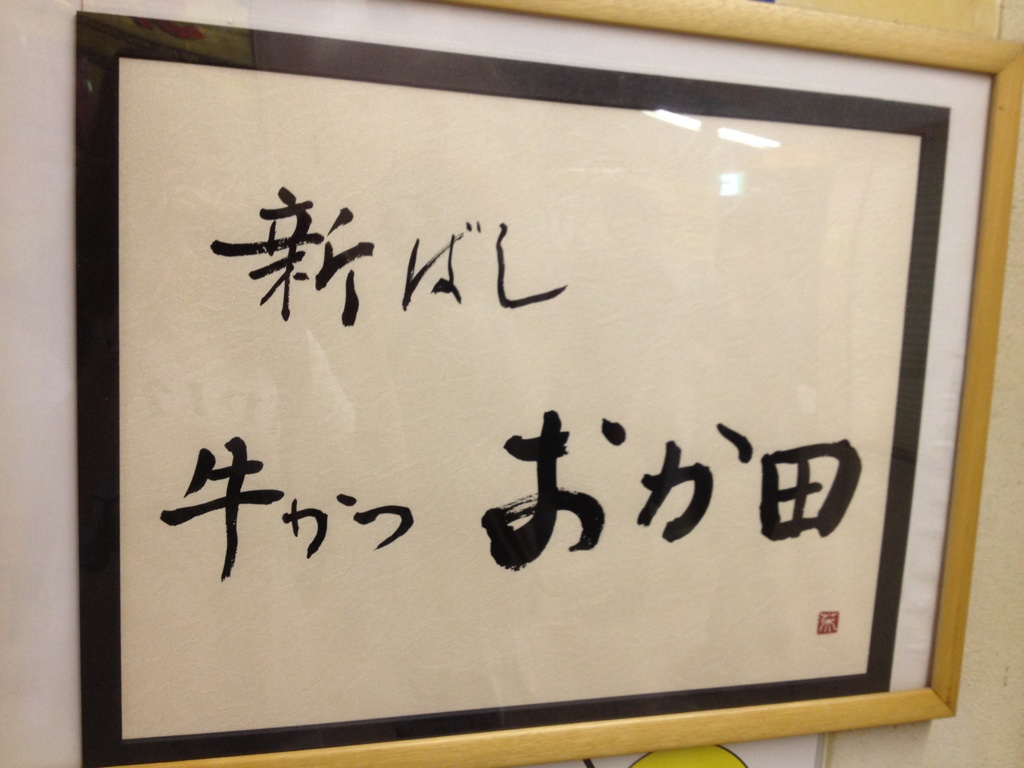 新ばし
牛かつ おか田